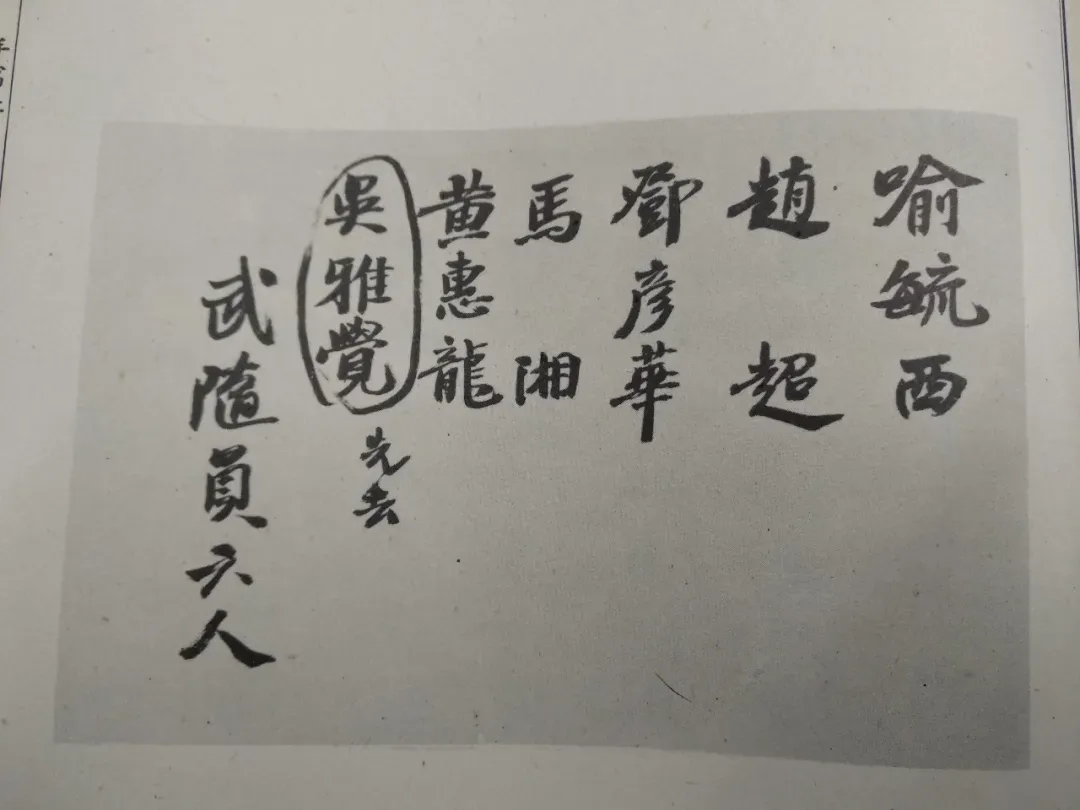 喻毓西
趙超
鄧彦華
馬湘
黄惠龍
吳雅覺 先去
武隨員六人